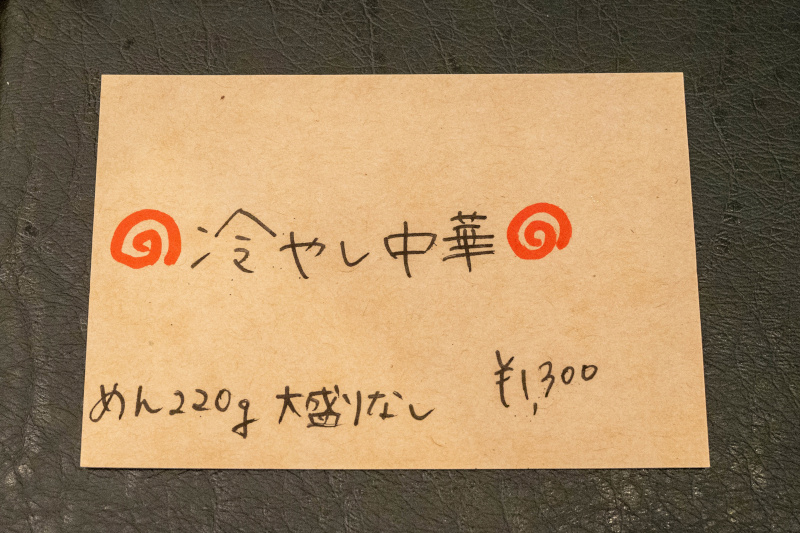 冷やし中華
めん220g 大盛りなし ¥1,300